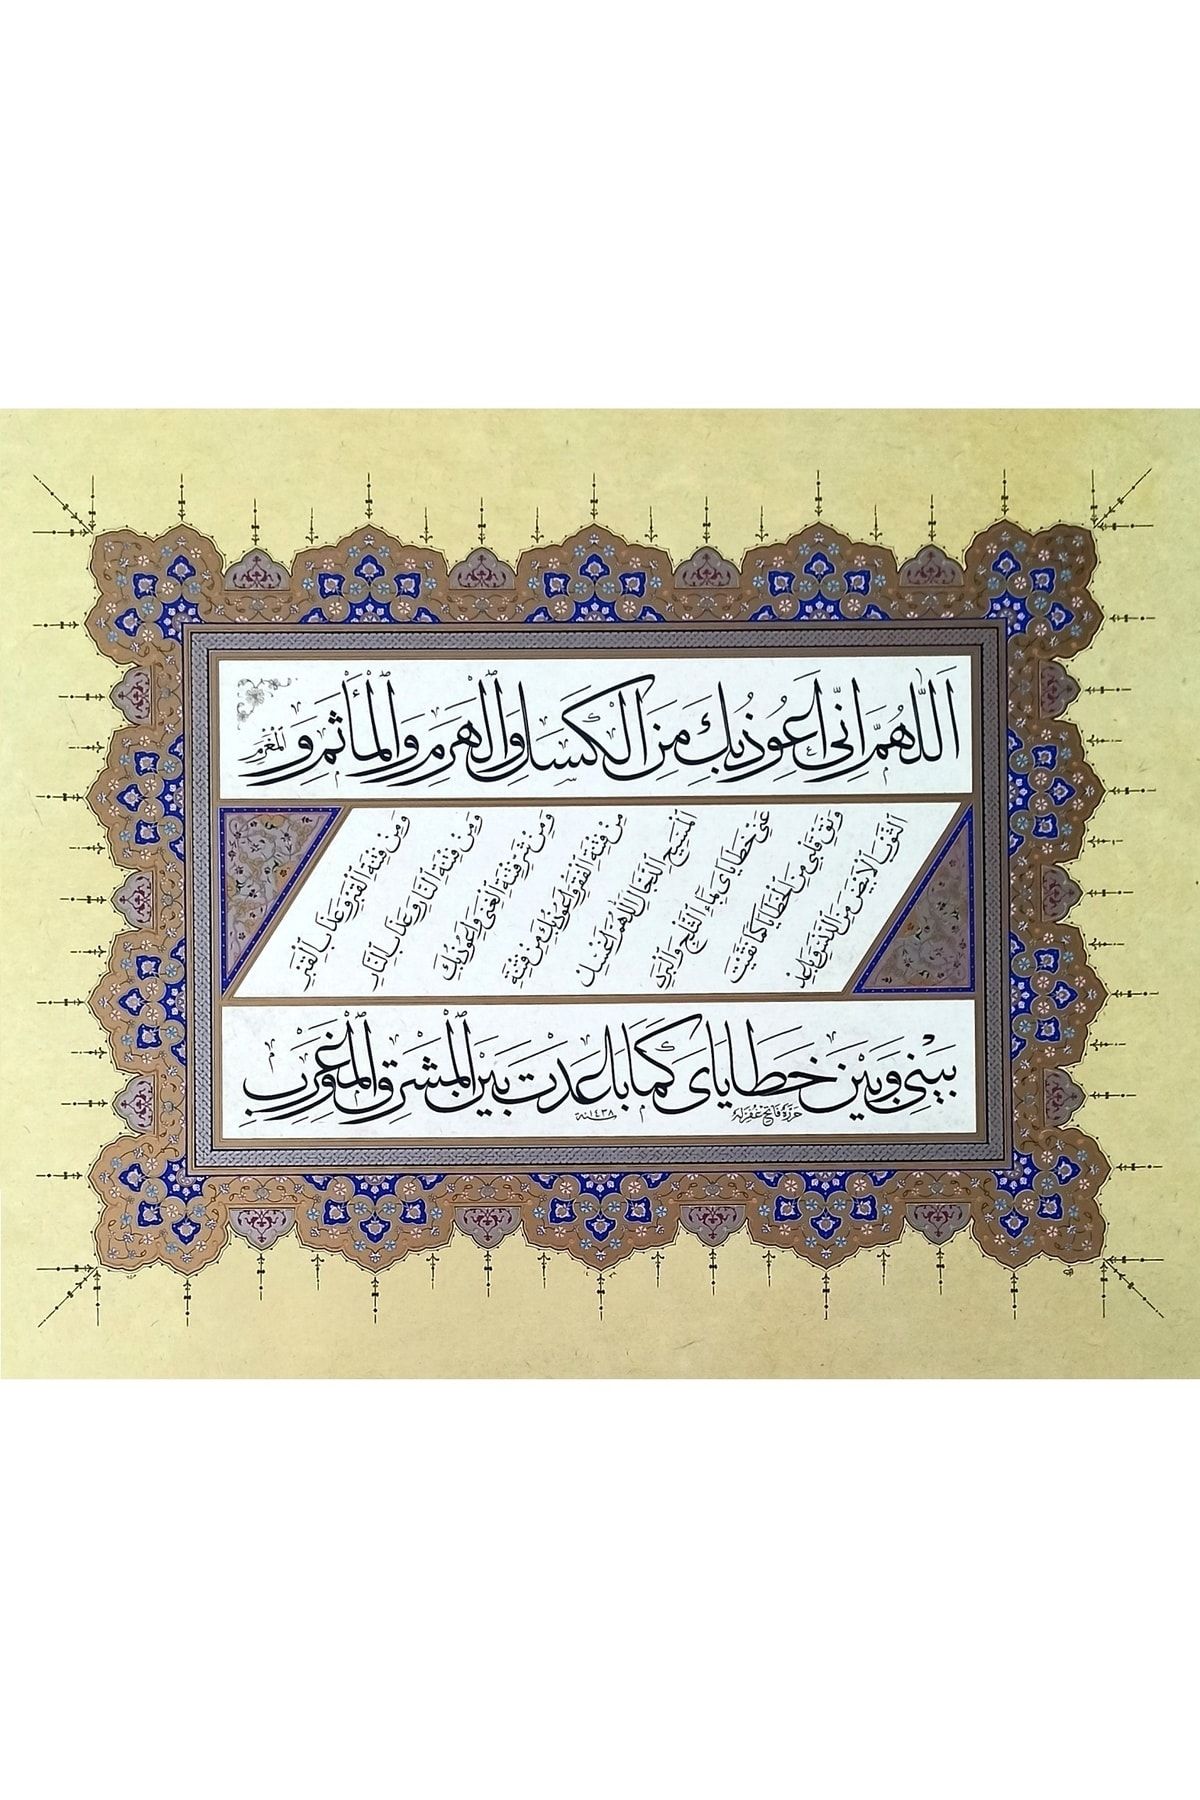 اَللّٰهُمَّ اِنّى اَعُوذُبِكَ مِنَ الْكَسَلِ وَالْهَرَمِ وَالْمَأْثَمِ وَالْمَغْرَمِ
وَمِنْ فِتْنَةِ الْقَبْرِ وَعَذَابِ الْقَبْرِ
وَمِنْ فِتْنَةِ النَّارِ وَعَذَابِ النَّارِ
وَمِنْ شَرِّ فِتْنَةِ الْغِنٰى وَاَعُوذُبِكَ
مِنْ فِتْنَةِ الْفَقْرِ وَاَعُوذُبِكَ مِنْ فِتْنَةِ
الْمَسِيحِ الدَّجَّالِ اَللّٰهُمَّ اغْسِلْ
عَنّى خَطَايَاىَ بِمَاءِ الثَّلْجِ وَالْبَرَدِ
وَنَقِّ قَلْبى مِنَ الْخَطَايَا كَمَا نَقَّيْتَ
الثَّوْبَ الْاَبْيَضَ مِنَ الدَّنَسِ وَبَاعِدْ
بَيْنى وَبَيْنَ خَطَايَاىَ كَمَا بَاعَدْتَ بَيْنَ الْمَشْرِقِ وَالْمَغْرِبِ
حرّره فاتح غفرله
سنه ١٤٣٨